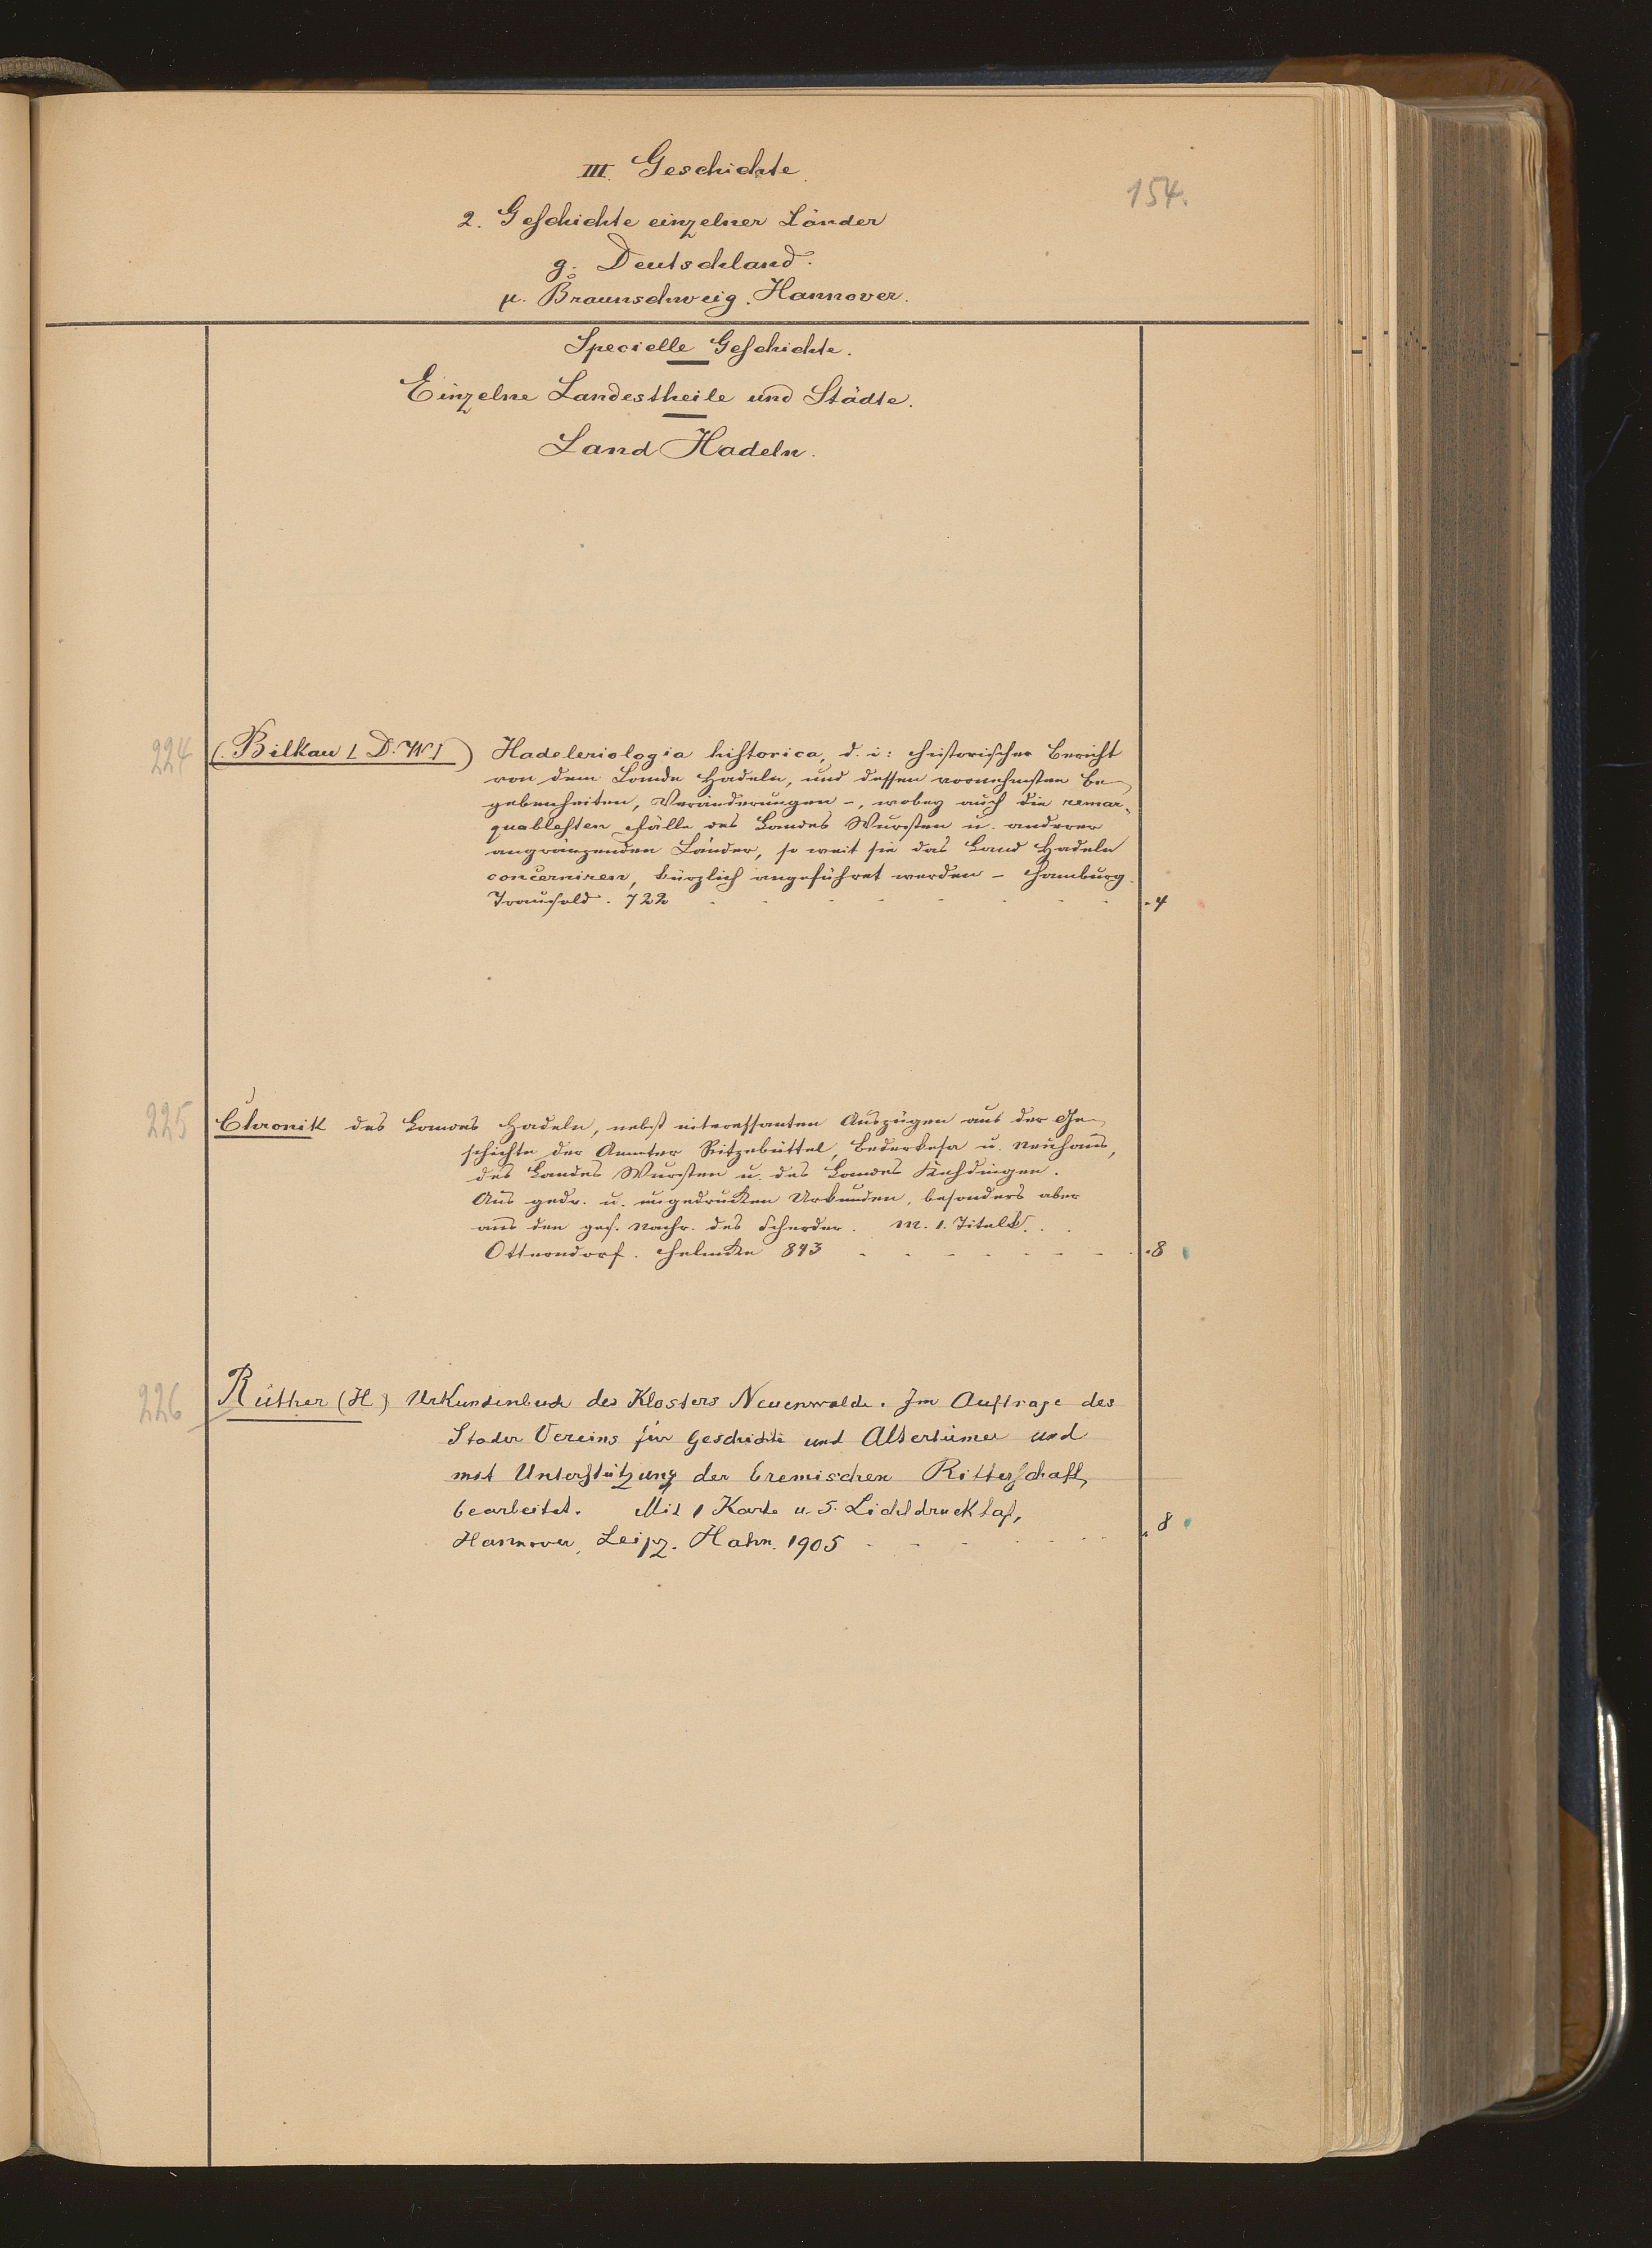 III. Geschichte.
154.
2. Geschichte einzelner Länder
g. Deutschland.
μ. Braunschweig. Hannover.
Specielle Geschichte.
Einzelne Landestheile und Städte.
Land Hadeln.
224 (Bilkau [D. W.]) Hadeleriologia historica, d. i: historischer Bericht
von dem Lande Hadeln, und dessen vornehmsten Be-
gebenheiten, Veränderungen -, wobey auch die remar-
quablesten Fälle des Landes Wursten u. anderer
angränzenden Länder, so weit sie das Land Hadeln
concerniren, kürzlich angeführet werden - Hamburg.
Trausold. 722 . 4
225 Chronik des Landes Hadeln, nebst interessanten Auszügen aus der Ge-
schichte der Aemter Ritzebüttel, Bederkesa u. Neuhaus,
des Landes Wursten u. des Landes Kehdingen.
Aus gedr. u. ungedruckten Urkunden, besonders aber
aus den ges. Nachr. des Scherder. M. 1. Titelk.
Otterndorf. Helmcke 843 . 8
226 Rüther (H) Urkundenbuch des Klosters Neuenwalde. Im Auftrage des
Stader Vereins für Geschichte und Altertümer und
mit Unterstützung der bremischen Ritterschaft
bearbeitet. Mit 1 Karte u. 5. Lichtdrucktaf.
Hannover, Leipz. Hahn. 1905 . 8